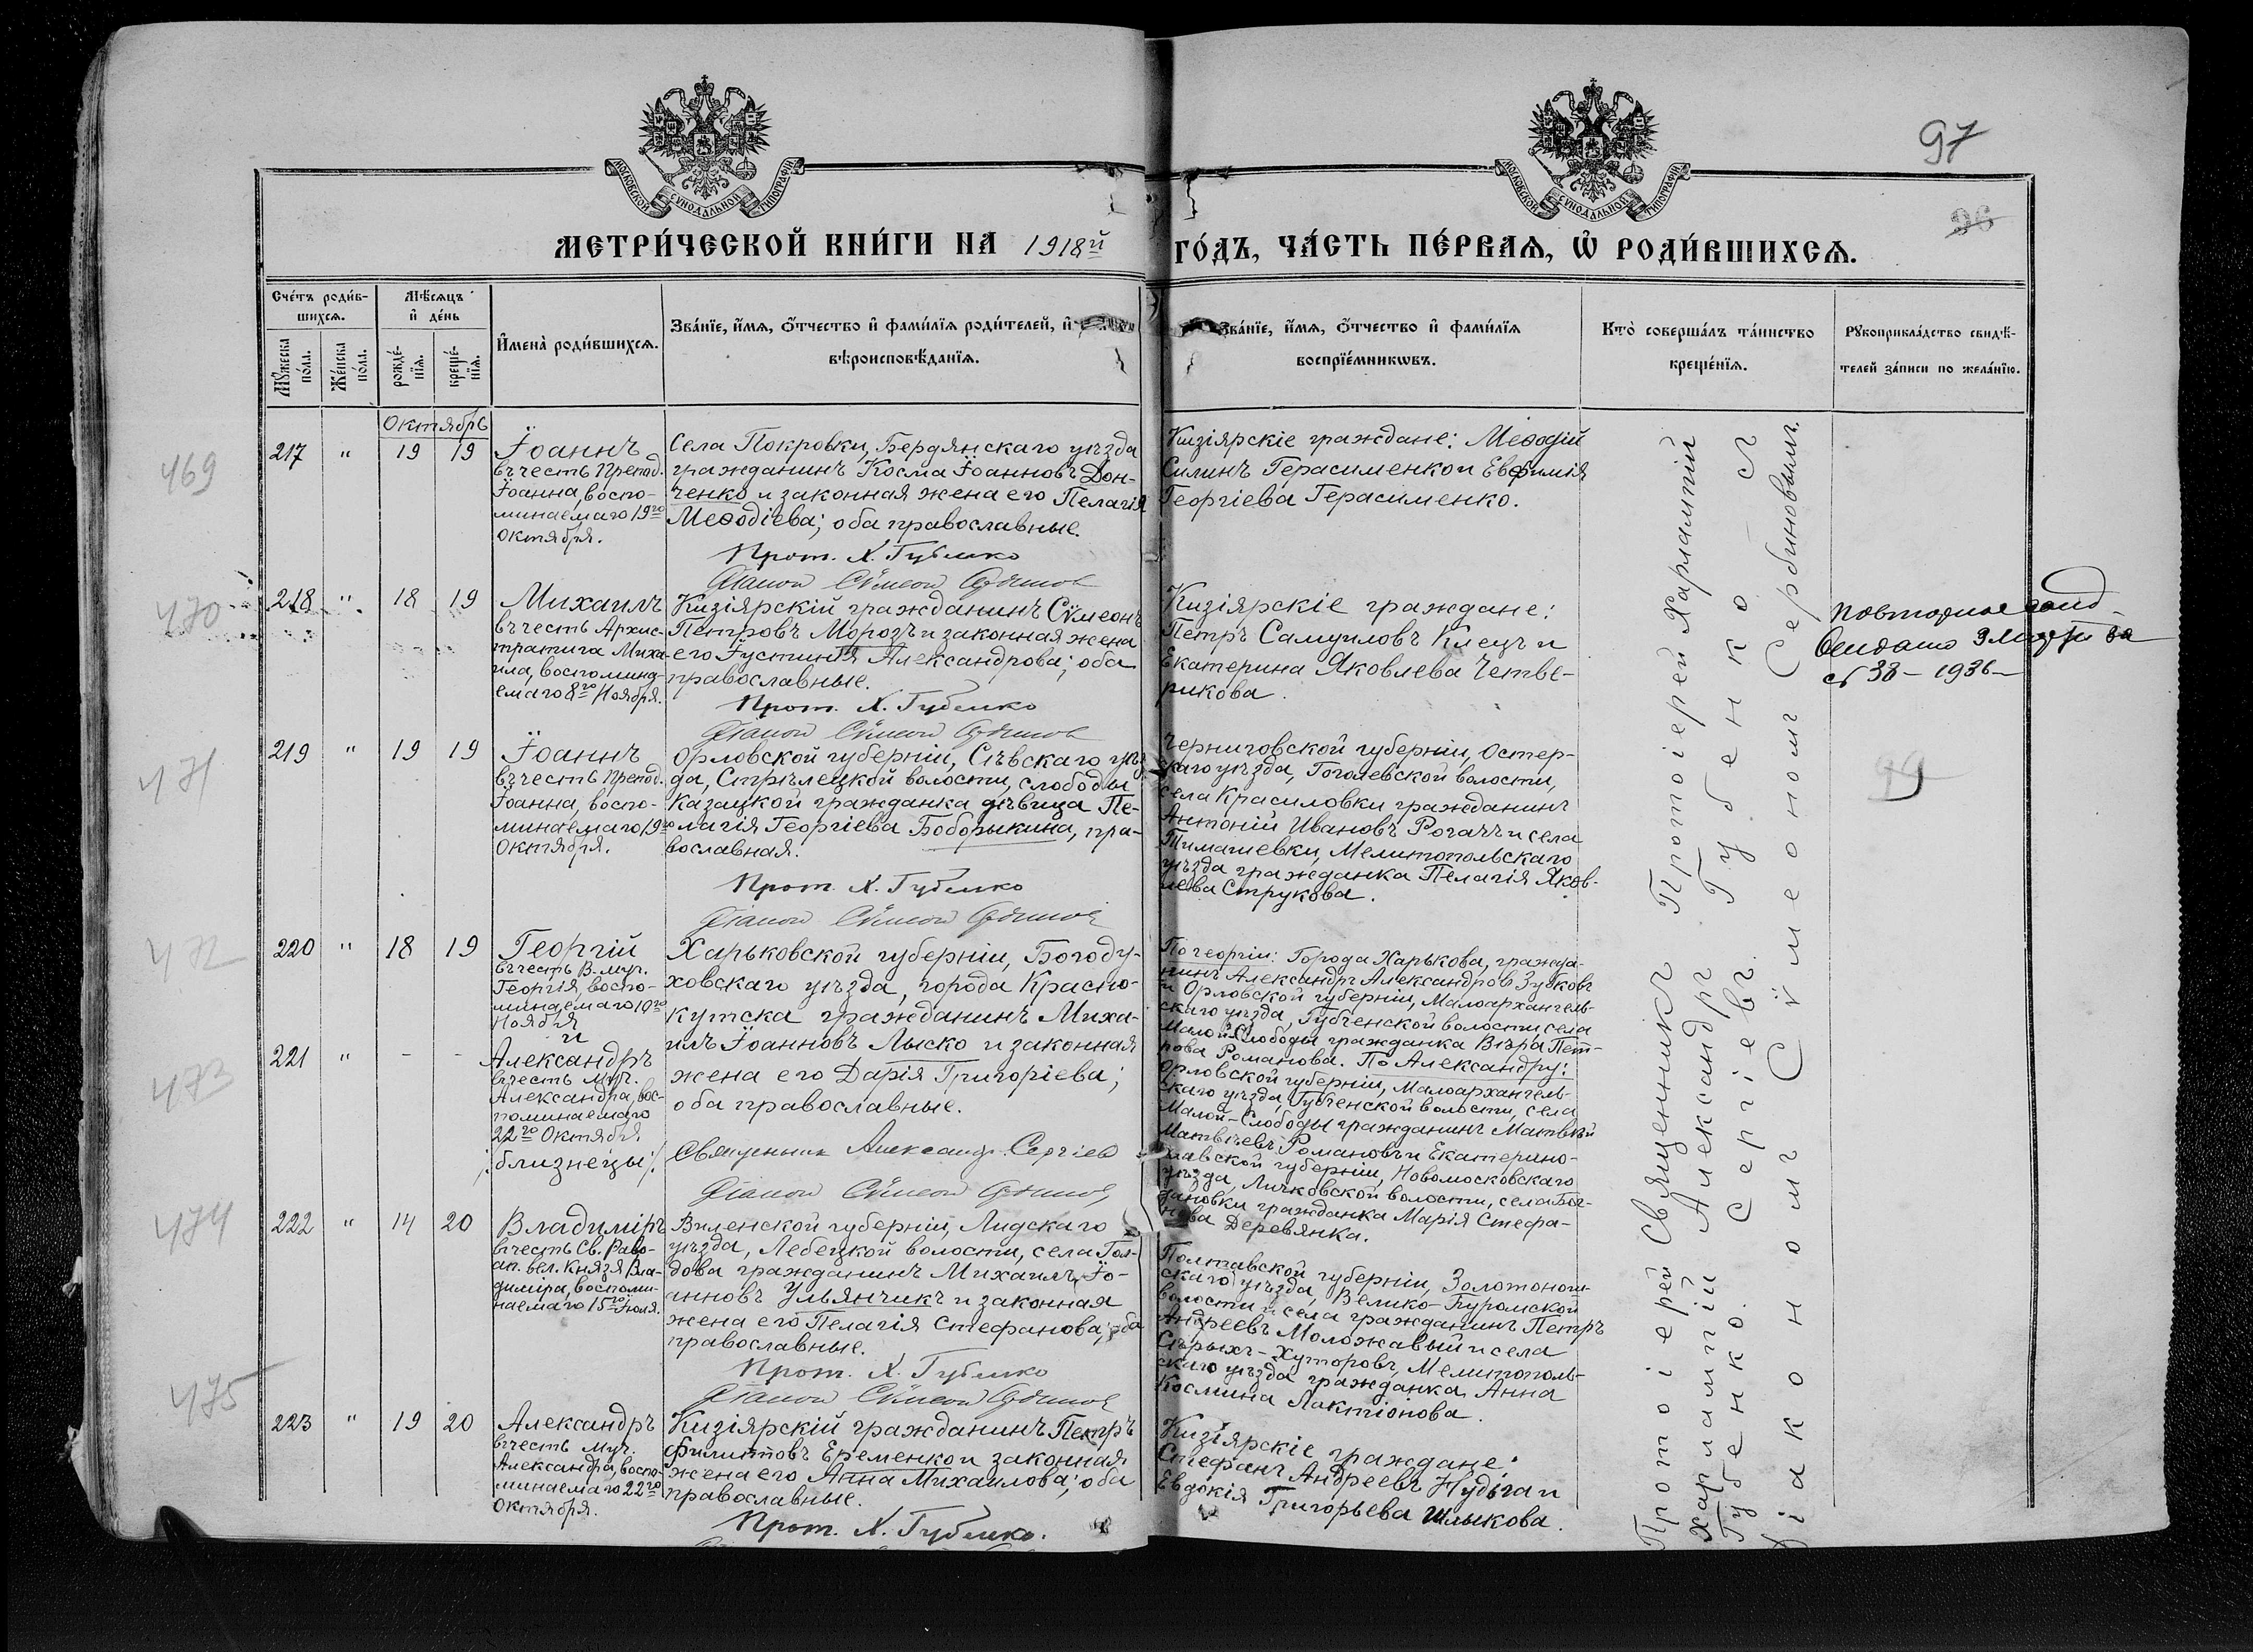 97
96
МОСКОВСКОЙ СѴНОДАЛЬНОЙ ТИПОГРАФІИ
МОСКОВСКОЙ СѴНОДАЛЬНОЙ ТИПОГРАФІИ
МЕТРИ́ЧЕСКОЙ КНИ́ГИ НА 1918й
ГО́ДЪ, ЧА́СТЬ ПЕ́РВАѦ, Ѡ҆ РОДИ́ВШИХСѦ.
Сче́тъ роди́в-
шихсѧ.
Мѣ́сѧцъ
и҆ де́нь
Мꙋ́жеска
по́ла.
Же́нска
по́ла.
рожде́-
нїѧ.
креще́-
нїѧ.
И҆мена̀ роди́вшихсѧ.
Зва́нїе, и҆́мѧ, ѻ҆́тчество и҆ фами́лїѧ роди́телей, и҆
вѣроисповѣ́данїѧ.
Зва́нїе, и҆́мѧ, ѻ҆́тчество и҆ фами́лїѧ
воспрїе́мникѡвъ.
Кто̀ соверша́лъ та́инство
креще́нїѧ.
Рꙋкоприкла́дство свидѣ́-
телей за́писи по жела́нїю.
Октябрь
469
217 " 19 19
Їоаннъ
въ честь Препод.
Їоанна, воспо-
минаемаго 19го
Октября.
Села Покровки, Бердянскаго уѣзда
гражданинъ Косма Їоанновъ Дон-
ченко и законная жена его Пелагія
Меѳодіева; оба православные.
Прот. Х. Губенко
Діакон Сѵмеон
Кизіярскіе граждане: Меѳодій
Силинъ Герасименко и Евфимія
Георгіева Герасименко.
470
218 " 18 19
Михаилъ
въ честь Архис-
тратига Миха-
ила, воспомина-
емаго 8го Ноября.
Кизіярскій гражданинъ Сѵмеонъ
Петровъ Морозъ и законная жена
его Їустинія Александрова; оба
православные.
Прот. Х. Губенко
Діакон Сѵмеон
Кизіярскіе граждане:
Петръ Самуиловъ Клецъ и
Екатерина Яковлева Четве-
рикова.
повторное свид-
1936
471
219 " 19 19
Їоаннъ
въ честь Препод.
Їоанна, воспо-
минаемаго 19го
Октября.
Орловской губерніи, Сѣвскаго уѣз-
да, Стрѣлецкой волости, слободы
Казацкой гражданка дѣвица Пе-
лагія Георгіева Боборыкина, пра-
вославная.
Прот. Х. Губенко
Діакон Сѵмеон
Черниговской губерніи, Остер-
скаго уѣзда, Гоголевской волости,
села Красиловки гражданинъ
Антоній Ивановъ Рогачъ и села
Тимашевки, Мелитопольскаго
уѣзда гражданка Пелагія Яков-
лева Струкова.
99
472
220 " 18 19
Георгій
въ честь В-муч.
Георгія, воспо-
минаемаго 10го
Ноября
и
473
221 " - -
Александръ
въ честь муч.
Александра, вос-
поминаемаго
22го Октября
/близнецы/.
Харьковской губерніи, Богоду-
ховскаго уѣзда, города Красно-
кутска гражданинъ Миха-
илъ Їоанновъ Лыско и законная
жена его Дарія Григоріева;
оба православные.
Священник Александр Сергіев
Діакон Сѵмеон
По георгію: Города Харькова, гражда-
нинъ Александръ Александровъ Зубковъ
и Орловской губерніи, Малоархангель-
скаго уѣзда, Губченской волости села
Малой-Слободы гражданка Вѣра Пет-
рова Романова. По Александру:
Орловской губерніи, Малоархангель-
скаго уѣзда, Губченской волости, села
Малой-Слободы гражданинъ Матвѣй
Матвѣевъ Романовъ и Екатерино-
славской губерніи, Новомосковскаго
уѣзда, Личковской волости, села Бог-
дановки гражданка Марія Стефа-
нова Деревянка.
474
222 " 14 20
Владиміръ
въ честь Св. Равно-
ап. вел. Князя Вла-
диміра, воспоми-
наемаго 15го Їюля.
Виленской губерніи, Лидскаго
уѣзда, Лебецкой волости, села Гол-
дова гражданинъ Михаилъ Їо-
анновъ Ульянчикъ и законная
жена его Пелагія Стефанова; оба
православные.
Прот. Х. Губенко
Діакон Сѵмеон
Полтавской губерніи, Золотонош-
скаго уѣзда, Велико-Буромской
волости и села гражданинъ Петръ
Андреевъ Моложавый и села
Сѣрыхъ-Хуторовъ, Мелитополь-
скаго уѣзда гражданка Анна
Космина Лактіонова.
475
223 " 19 20
Александръ
въ честь муч.
Александра, воспо-
минаемаго 22го
Октября.
Кизіярскій гражданинъ Петръ
Филипповъ Еременко и законная
жена его Анна Михаилова; оба
православные.
Прот. Х. Губенко.
Кизіярскіе граждане:
Стефанъ Андреевъ Нудьга и
Евдокія Григорьева Шлыкова.
Протоіерей Священникъ Протоіерей Харлампій
Харлампій Александръ Губенко съ
Губенко. Сергіевъ.
Діакономъ Сѵмеономъ Сербиновымъ.